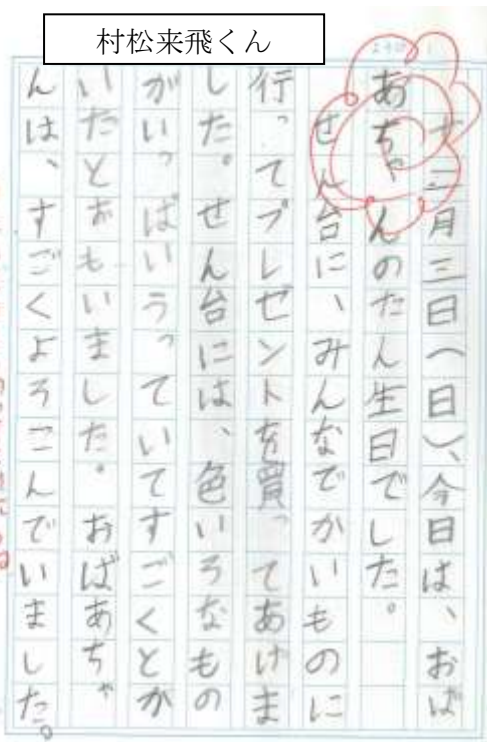 村松来飛くん
十二月三日(日)、今日は、おば
あちゃんのたん生日でした。
せん台に、みんなでかいものに
行ってプレゼントを買ってあげま
した。せん台には、色いろなもの
がいっぱいうっていてすごくとか
いだとおもいました。おばあちゃ
んは、すごくよろこんでいました。